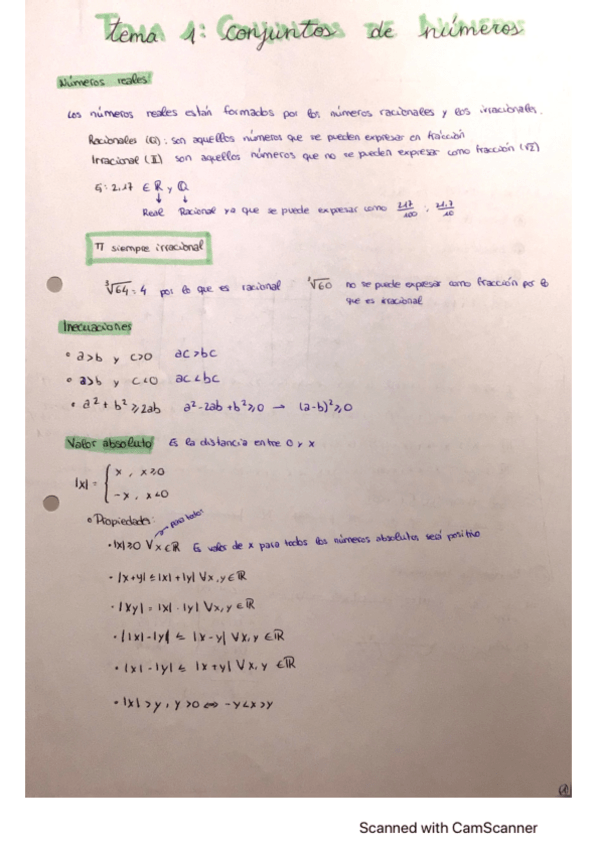 Tema 1: Conjuntos de números
Números reales
Los números reales están formados por los números racionales y los irracionales.
Racionales (Q): son aquellos números que se pueden expresar en fracción
Irracional (II) son aquellos números que no se pueden expresar como fracción (√2)
Ej: 2.17 ∈ ℝ y ℚ
↓ ↓
Real Racional ya que se puede expresar como 217/100 , 21,7/10
π siempre irracional
³√64 = 4 por lo que es racional ³√60 no se puede expresar como fracción por lo
que es irracional
Inecuaciones
• a>b y c>0 ac>bc
• a>b y c<0 ac<bc
• a² + b² ≥ 2ab a² - 2ab + b² ≥ 0 → (a-b)² ≥ 0
Valor absoluto Es la distancia entre 0 y x
|x| = { x , x≥0
-x , x<0
• Propiedades:
para todos
• |x| ≥ 0 ∀x∈ℝ El valor de x para todos los números absolutos será positivo
• |x+y| ≤ |x| + |y| ∀x,y∈ℝ
• |xy| = |x| · |y| ∀x,y∈ℝ
• ||x|-|y|| ≤ |x-y| ∀x,y∈ℝ
• |x| - |y| ≤ |x+y| ∀x,y ∈ℝ
• |x| > y , y>0 ⇔ -y<x>y
(1)
Scanned with CamScanner